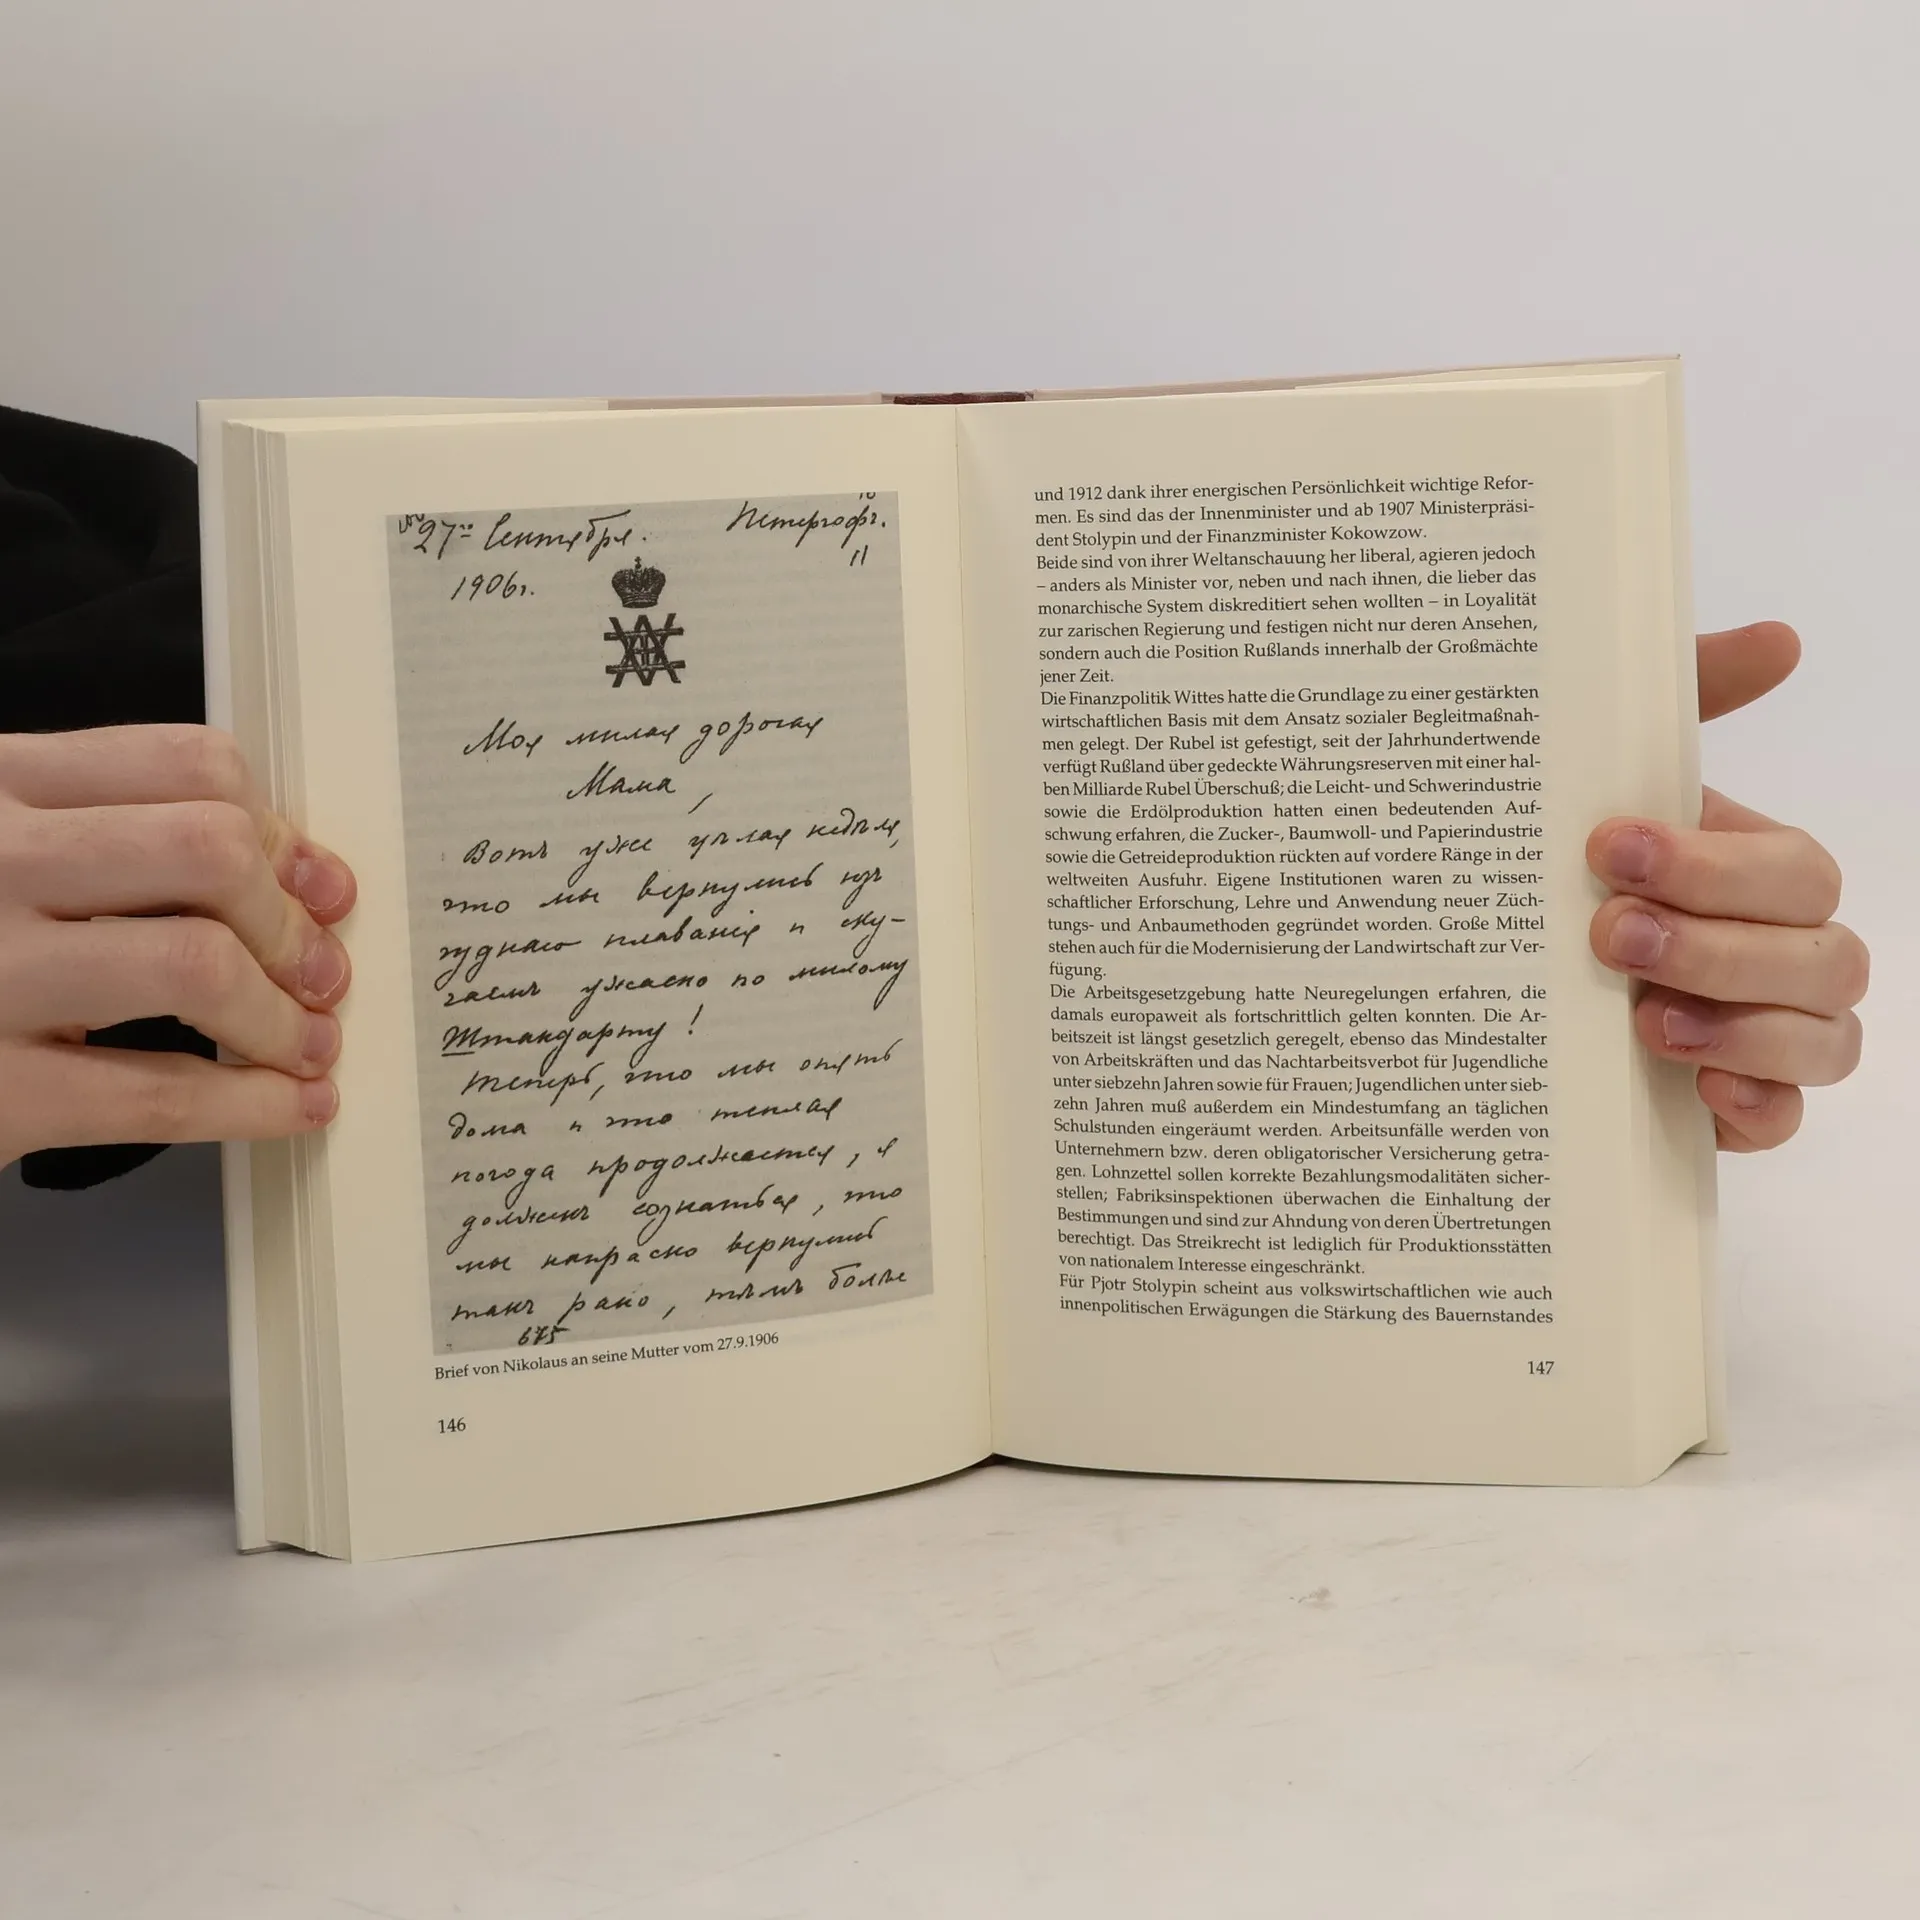 27го Сентября.
Петергофъ.
1906г.
11
Моя милая дорогая
Мама,
Вотъ уже цѣлая недѣля,
что мы вернулись изъ
чуднаго плаванія и ску-
чаемъ ужасно по милому
Штандарту!
Теперь, что мы опять
дома и что теплая
погода продолжается, я
долженъ сознаться, что
мы напрасно вернулись
такъ рано, тѣмъ болѣе
675
Brief von Nikolaus an seine Mutter vom 27.9.1906
146
und 1912 dank ihrer energischen Persönlichkeit wichtige Refor-
men. Es sind das der Innenminister und ab 1907 Ministerpräsi-
dent Stolypin und der Finanzminister Kokowzow.
Beide sind von ihrer Weltanschauung her liberal, agieren jedoch
– anders als Minister vor, neben und nach ihnen, die lieber das
monarchische System diskreditiert sehen wollten – in Loyalität
zur zarischen Regierung und festigen nicht nur deren Ansehen,
sondern auch die Position Rußlands innerhalb der Großmächte
jener Zeit.
Die Finanzpolitik Wittes hatte die Grundlage zu einer gestärkten
wirtschaftlichen Basis mit dem Ansatz sozialer Begleitmaßnah-
men gelegt. Der Rubel ist gefestigt, seit der Jahrhundertwende
verfügt Rußland über gedeckte Währungsreserven mit einer hal-
ben Milliarde Rubel Überschuß; die Leicht- und Schwerindustrie
sowie die Erdölproduktion hatten einen bedeutenden Auf-
schwung erfahren, die Zucker-, Baumwoll- und Papierindustrie
sowie die Getreideproduktion rückten auf vordere Ränge in der
weltweiten Ausfuhr. Eigene Institutionen waren zu wissen-
schaftlicher Erforschung, Lehre und Anwendung neuer Züch-
tungs- und Anbaumethoden gegründet worden. Große Mittel
stehen auch für die Modernisierung der Landwirtschaft zur Ver-
fügung.
Die Arbeitsgesetzgebung hatte Neuregelungen erfahren, die
damals europaweit als fortschrittlich gelten konnten. Die Ar-
beitszeit ist längst gesetzlich geregelt, ebenso das Mindestalter
von Arbeitskräften und das Nachtarbeitsverbot für Jugendliche
unter siebzehn Jahren sowie für Frauen; Jugendlichen unter sieb-
zehn Jahren muß außerdem ein Mindestumfang an täglichen
Schulstunden eingeräumt werden. Arbeitsunfälle werden von
Unternehmern bzw. deren obligatorischer Versicherung getra-
gen. Lohnzettel sollen korrekte Bezahlungsmodalitäten sicher-
stellen; Fabriksinspektionen überwachen die Einhaltung der
Bestimmungen und sind zur Ahndung von deren Übertretungen
berechtigt. Das Streikrecht ist lediglich für Produktionsstätten
von nationalem Interesse eingeschränkt.
Für Pjotr Stolypin scheint aus volkswirtschaftlichen wie auch
innenpolitischen Erwägungen die Stärkung des Bauernstandes
147